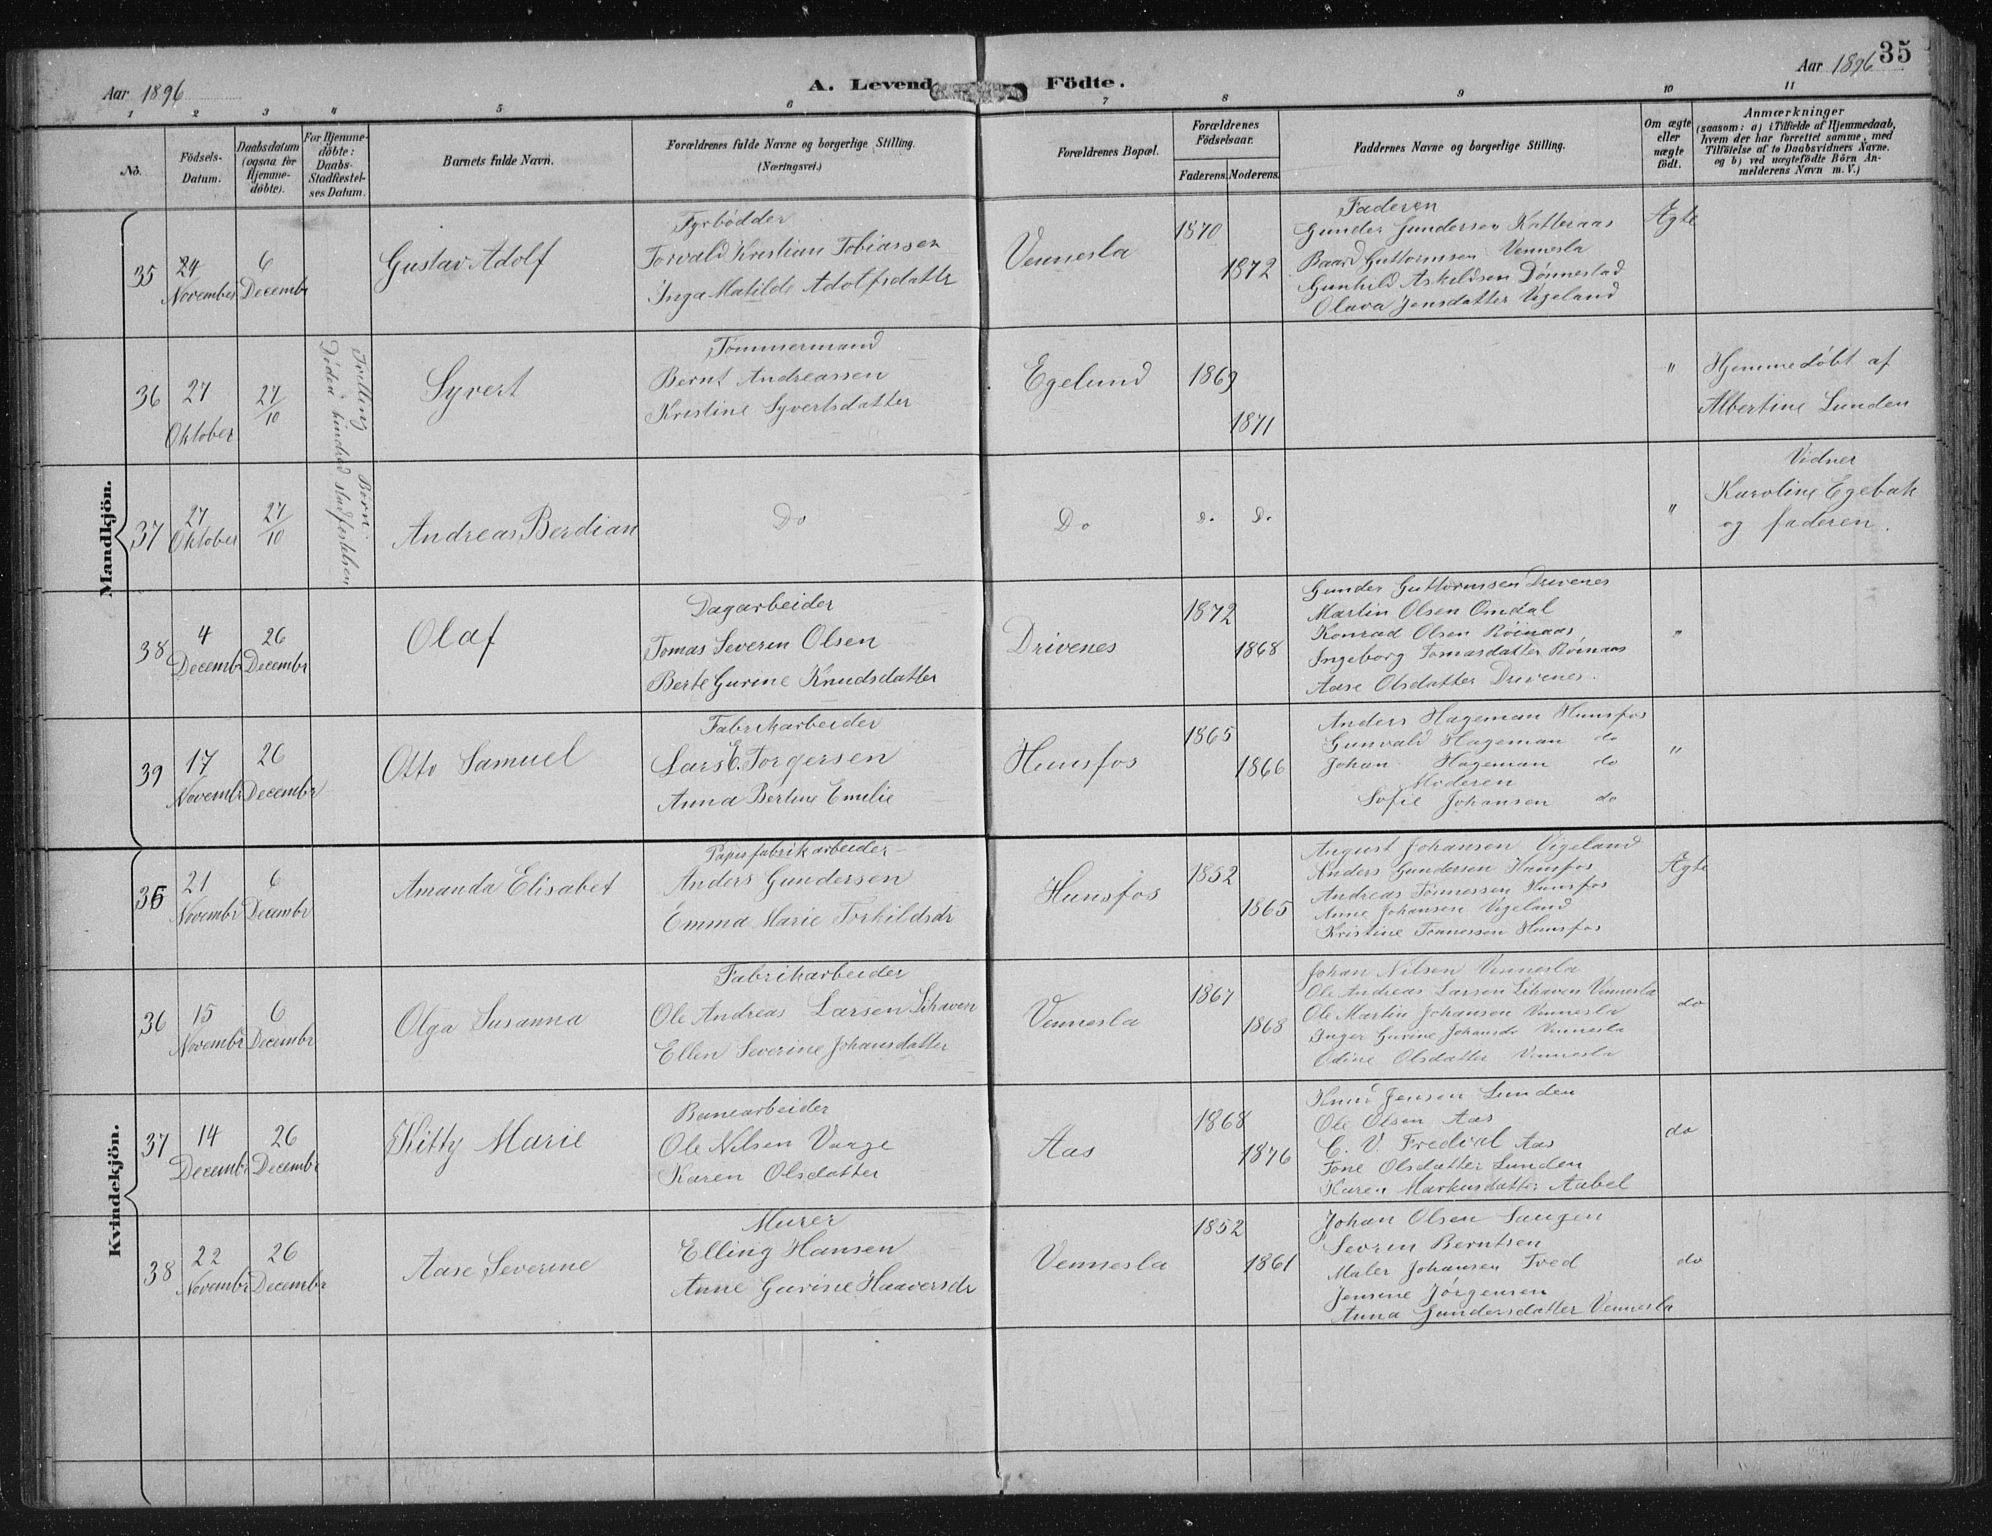 35
Aar 1896
A. Levende Födte.
Aar 1896
1 2 3 4 5 6 7 8 9 10 11
No.
Födsels-Datum.
Daabsdatum (ogsaa for Hjemmedöbte).
For Hjemmedöbte: Daabs-Stadfæstelses Datum.
Barnets fulde Navn.
Forældrenes fulde Navne og borgerlige Stilling. (Næringsvei.)
Forældrenes Bopæl.
Forældrenes Födselsaar.
Faderens. Moderens.
Faddernes Navne og borgerlige Stilling.
Om ægte eller uægte födt.
Anmærkninger
(saasom: a) i Tilfælde af Hjemmedaab, hvem der har forrettet samme, med Tilföielse af to Daabsvidners Navne. og b) ved uægtefödte Börn Anmelderens Navn m. V.)
Mandkjön.
35
24 November
6 Decembr
Gustav Adolf
Fyrbødder
Torvald Kristian Tobiassen
Inga Matilde Adolfsdatter
Vennesla
1870
1872
Faderen
Gunder Gundersen Katteraas
Baard Guttormsen Vennesla
Gunhild Askildsen Dønnestad
Olava Jensdatter Vigeland
Ægte
36
27 Oktober
27/10
Tvilling Børn
Døden hindred stadfestelsen
Syvert
Tømmermand
Bernt Andreassen
Kristine Syvertsdatter
Egelund
1869
1871
"
Hjemmedøbt af
Albertine Lunden
37
27 Oktober
27/10
Andreas Berdian
Do
Do
D. D.
"
Vidner
Karoline Egebak
og faderen.
38
4 Decembr
26 Decembr
Olaf
Dagarbeider
Tomas Severin Olsen
Berte Gurine Knudsdatter
Drivenes
1872
1868
Gunder Guttormsen Drivenes
Martin Olsen Omdal
Konrad Olsen Roinaas
Ingeborg Tomasdatter Roinaas
Aase Olsdatter Drivenes.
"
39
17 Novembr
26 Decembr
Otto Samuel
Fabrikarbeider
Lars E. Torgersen
Anna Bertine Emilie
Hunsfos
1865
1866
Anders Hageman Hunsfos
Gunvald Hageman do
Johan Hageman do
Moderen
Sofie Johansen do
"
Kvindekjön.
35
21 Novembr
6 Decembr
Amanda Elisabet
Papirfabrikarbeider
Anders Gundersen
Emma Marie Torkildsdr
Hunsfos
1852
1865
August Johansen Vigeland
Anders Gundersen Hunsfos
Andreas Tønnessen Hunsfos
Anne Johansen Vigeland
Kristine Tønnessen Hunsfos
Ægte
36
15 Novembr
6 Decembr
Olga Susanna
Fabrikarbeider
Ole Andreas Larsen Lihaven
Ellen Severine Johansdatter
Vennesla
1867
1868
Johan Nilsen Vennesla
Ole Andreas Larsen Lihaven Vennesla
Ole Martin Johansen Vennesla
Inger Gurine Johansdr Vennesla
Edine Olsdatter Vennesla
do
37
14 Decembr
26 Decembr
Kitty Marie
Banearbeider
Ole Nilsen Vaage
Karen Olsdatter
Aas
1868
1876
Knud Jensen Lunden
Ole Olsen Aas
C. V. Aas
Tone Olsdatter Lunden
Karen Markusdatter Aabel
do
38
22 Novembr
26 Decembr
Aase Severine
Murer
Elling Hansen
Anne Gurine Haaversdr
Vennesla
1852
1861
Johan Olsen Saugen
Sevrin Berntsen
Maler Johansen Tved
Jensine Jørgensen
Anna Gundersdatter Vennesla
do